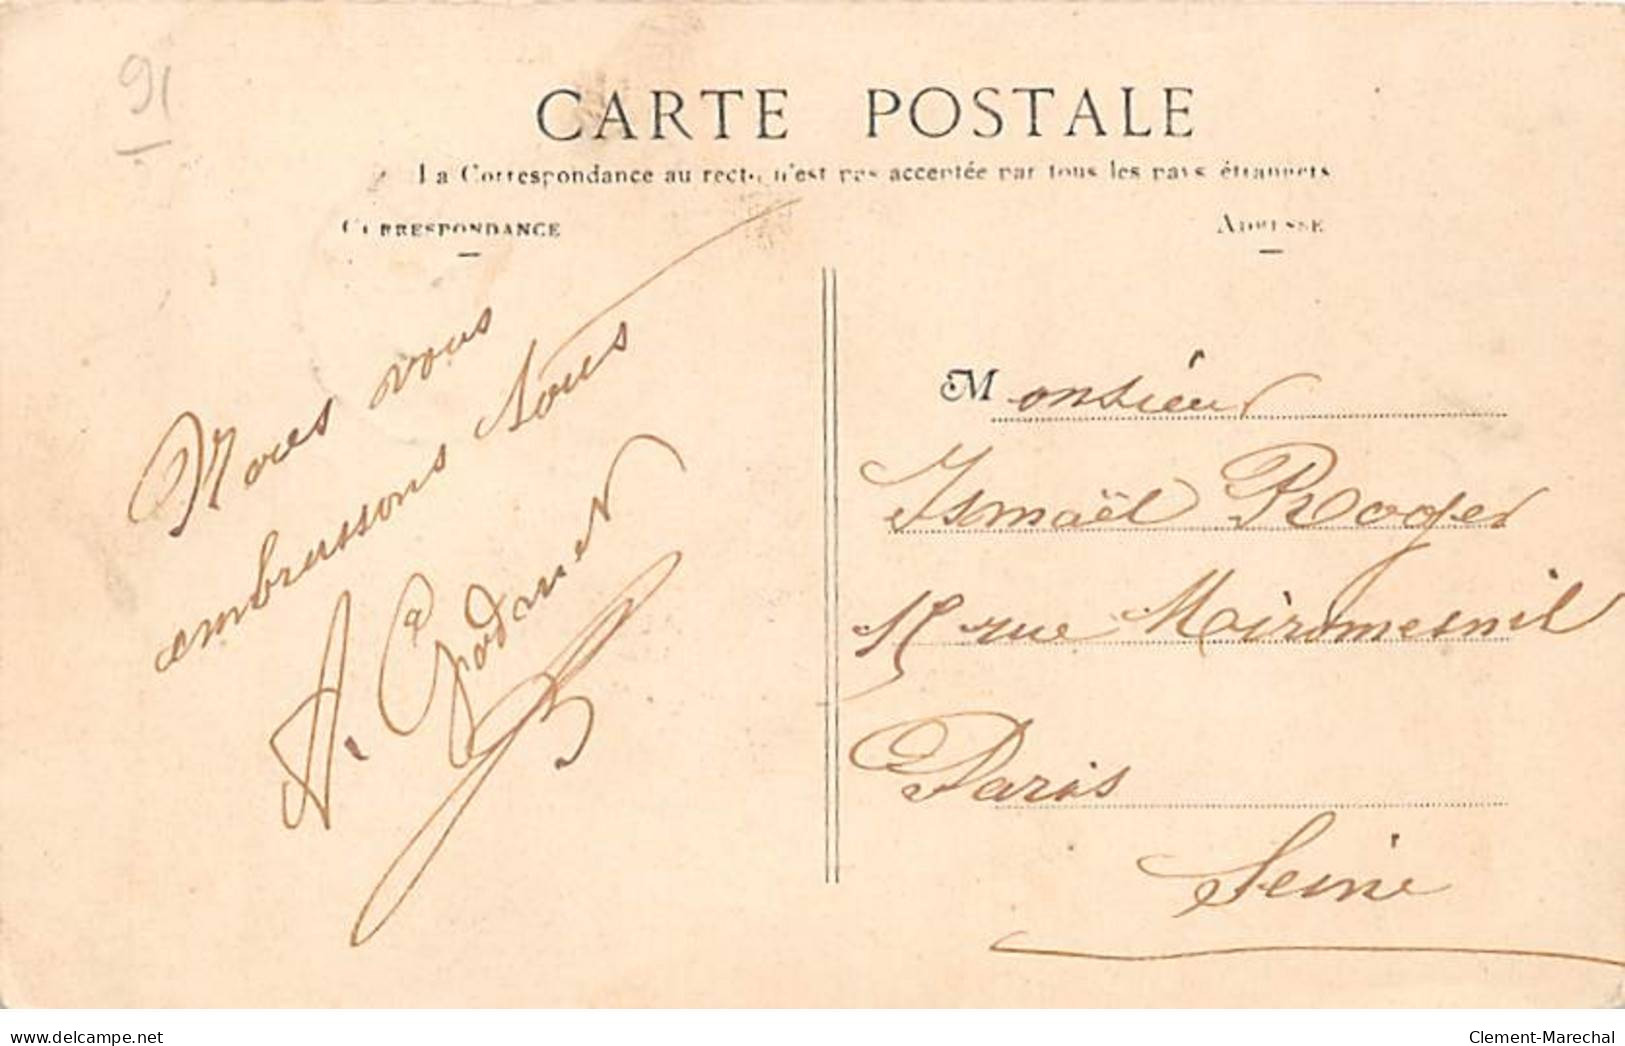 91
CARTE POSTALE
La Correspondance au recto n'est pas acceptée par tous les pays étrangers
CORRESPONDANCE
ADRESSE
Nous vous
embrassons tous
A. Godmet
Monsieur
Ismaël Roger
15 rue Miromesnil
Paris
Seine
www.delcampe.net
Clement-Marechal